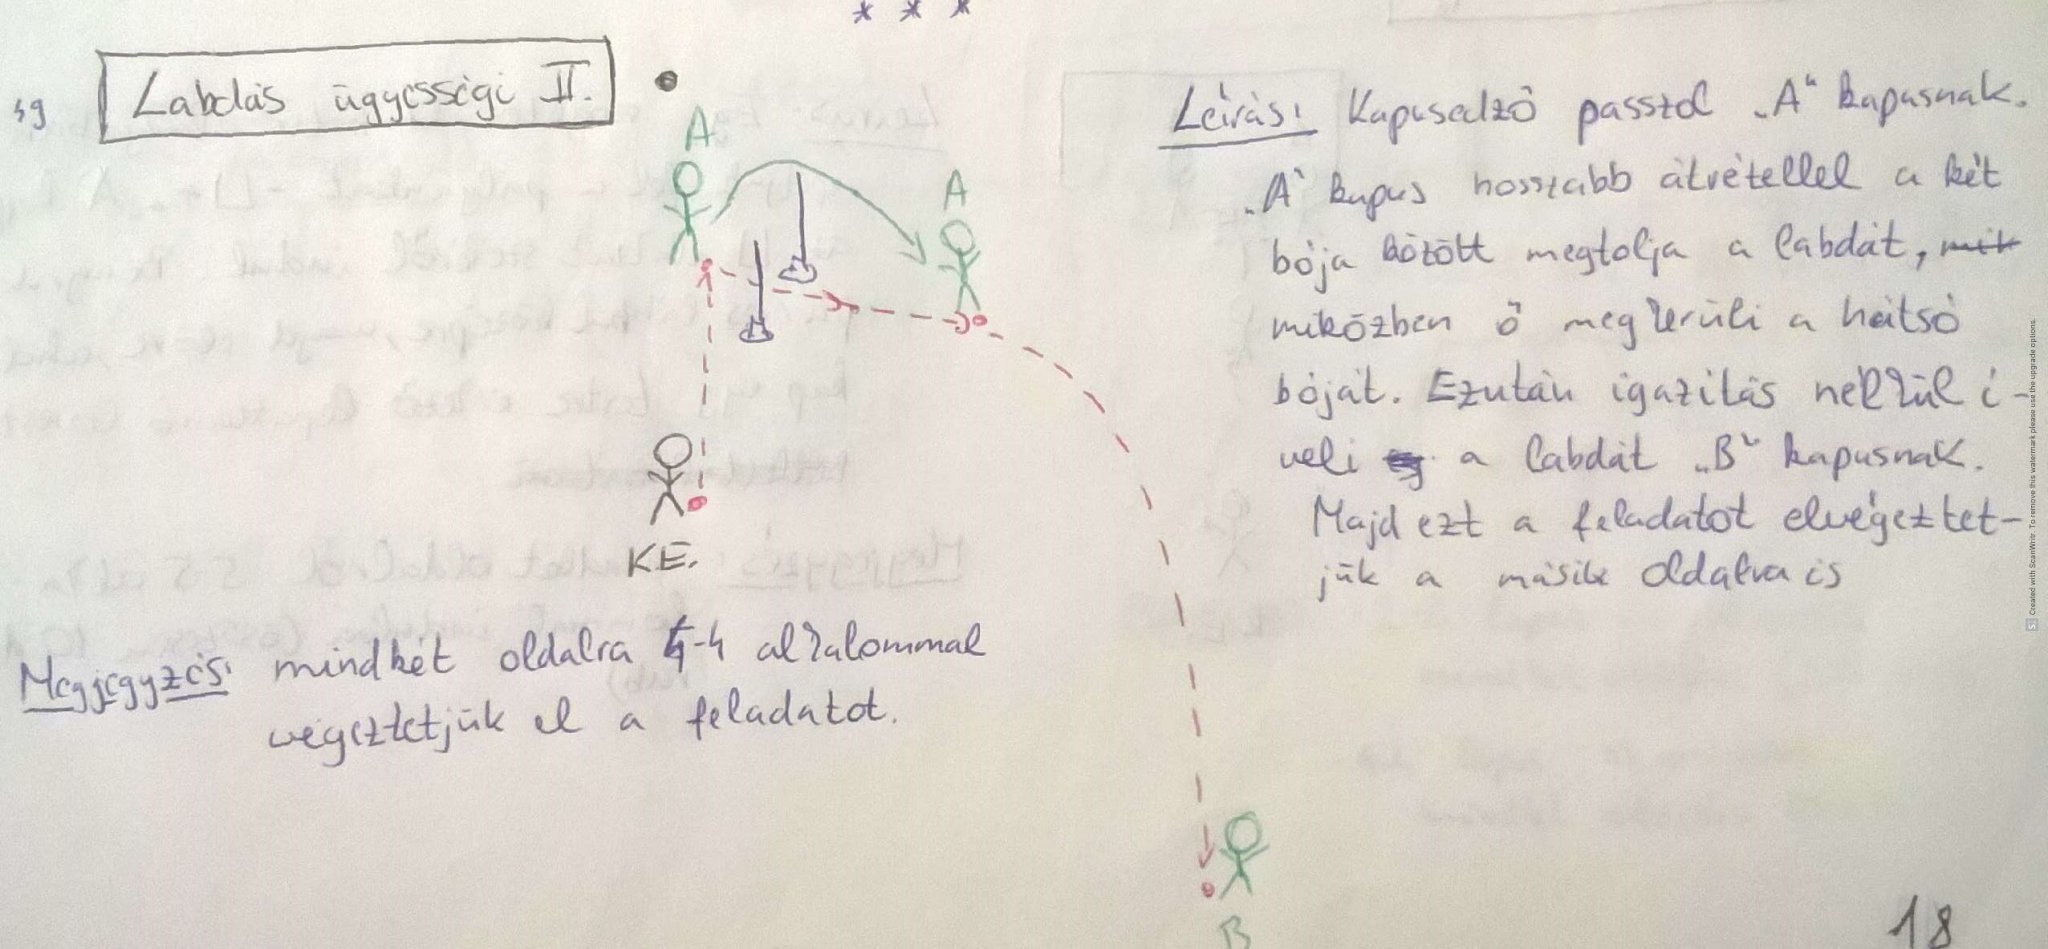 * * *
sg
Labdás ügyességi II.
A
A
KE.
B
Leírás: Kapusedző passzol „A" kapusnak.
„A" kapus hosszabb átvétellel a két
bója között megtolja a labdát, mik
miközben ő megkerüli a hátsó
bóját. Ezután igazítás nélkül í-
veli a labdát „B" kapusnak.
Majd ezt a feladatot elvégeztet-
jük a másik oldalra is
Megjegyzés: mindkét oldalra 4-4 alkalommal
végeztetjük el a feladatot.
18
Created with ScanWritr. To remove this watermark please use the upgrade options.